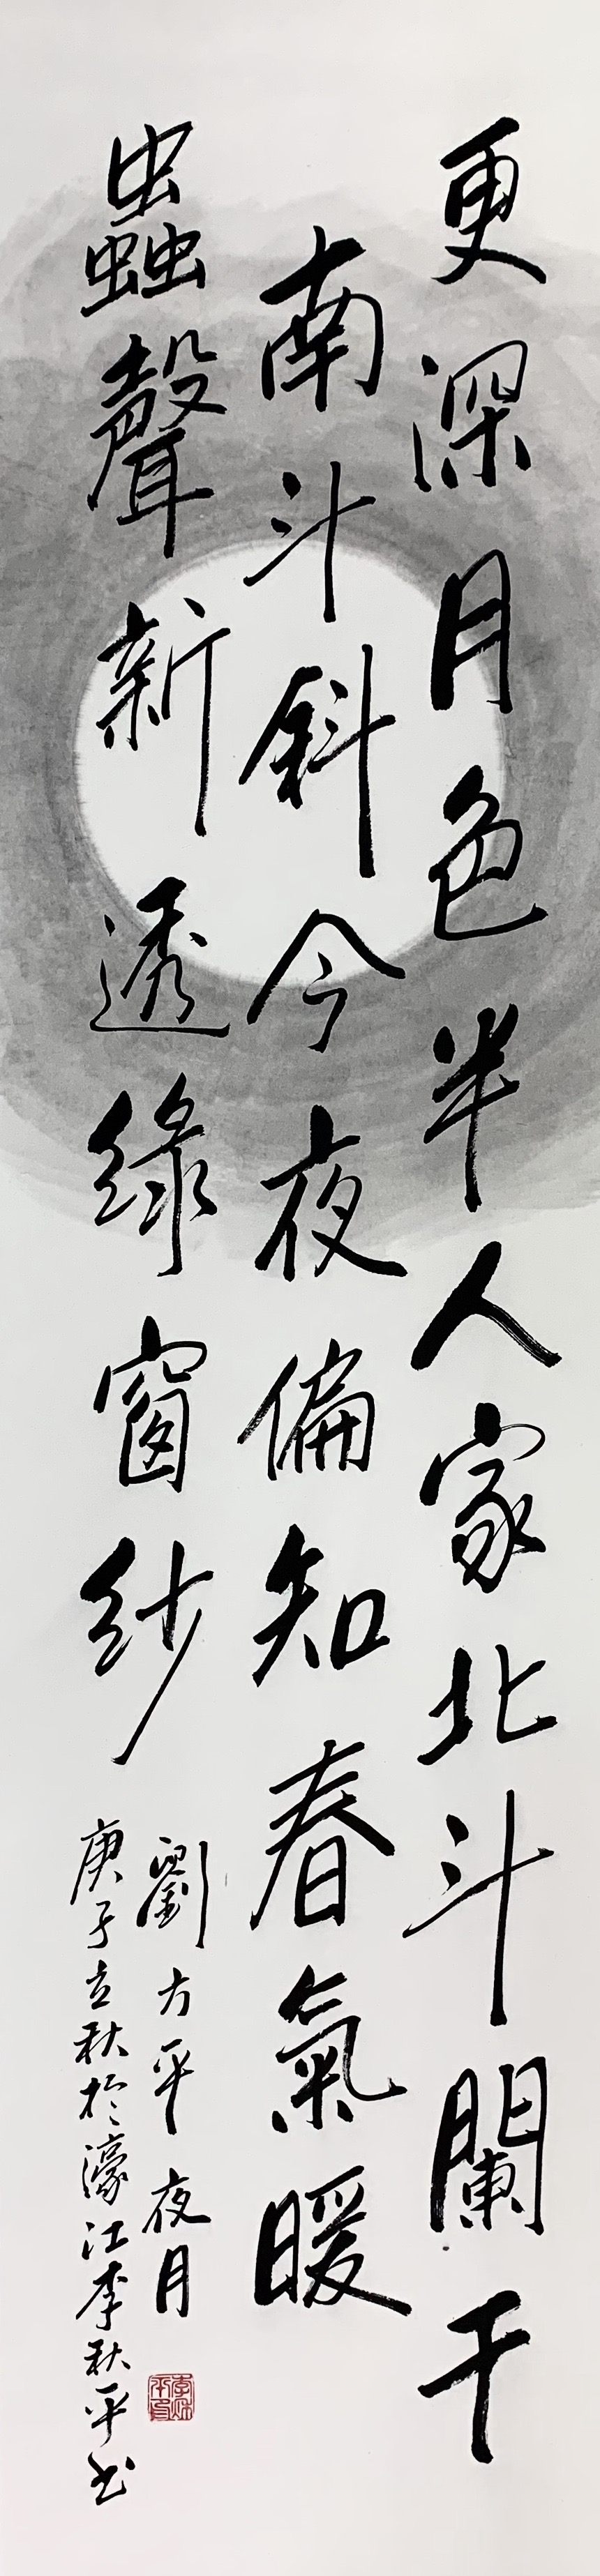 更深月色半人家北斗闌干
南斗斜今夜偏知春氣暖
蟲聲新透綠窗紗
劉方平夜月
庚子立秋於濠江李秋平书